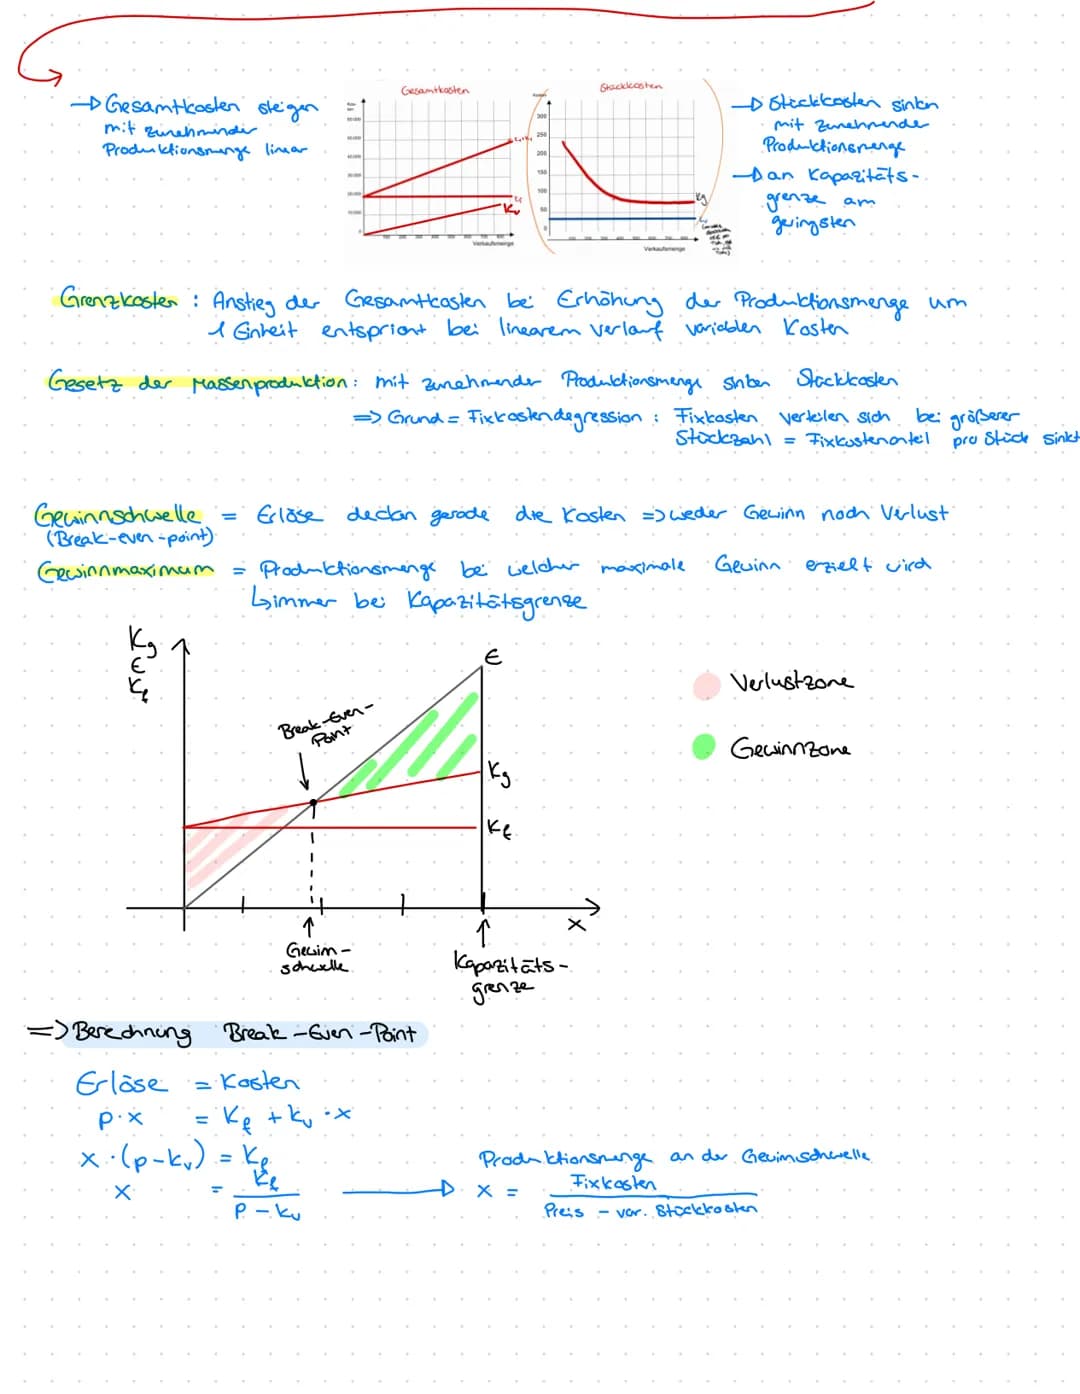 Gesamtkosten
Stückkosten
→ Gesamtkosten steigen
mit zunehmender
Produktionsmenge linear
Kv
Verkaufsmenge
300
250
200
150
100
50
0
kg
Verkaufsmenge
→ Stückkosten sinken
mit zunehmender
Produktionsmenge
→ an Kapazitäts-
grenze am
geringsten
Grenzkosten : Anstieg der Gesamtkosten bei Erhöhung der Produktionsmenge um
1 Einheit entspricht bei linearem Verlauf variablen Kosten
Gesetz der Massenproduktion : mit zunehmender Produktionsmenge sinken Stückkosten
=> Grund = Fixkostendegression : Fixkosten verteilen sich bei größerer
Stückzahl = Fixkostenanteil pro Stück sinkt
Gewinnschwelle = Erlöse decken gerade die Kosten => weder Gewinn noch Verlust
(Break-even-point)
Gewinnmaximum = Produktionsmenge bei welcher maximale Gewinn erzielt wird
↳ immer bei Kapazitätsgrenze
Kg
E
Kf
E
Break-Even-
Point
Kg
Kf
x
Gewinn-
schwelle
Kapazitäts-
grenze
Verlustzone
Gewinnzone
=> Berechnung Break-Even-Point
Erlöse = Kosten
p·x = Kf + kv · x
x · (p-kv) = Kf
x = Kf / p - kv
Produktionsmenge an der Gewinnschwelle
→ x = Fixkosten / Preis - var. Stückkosten